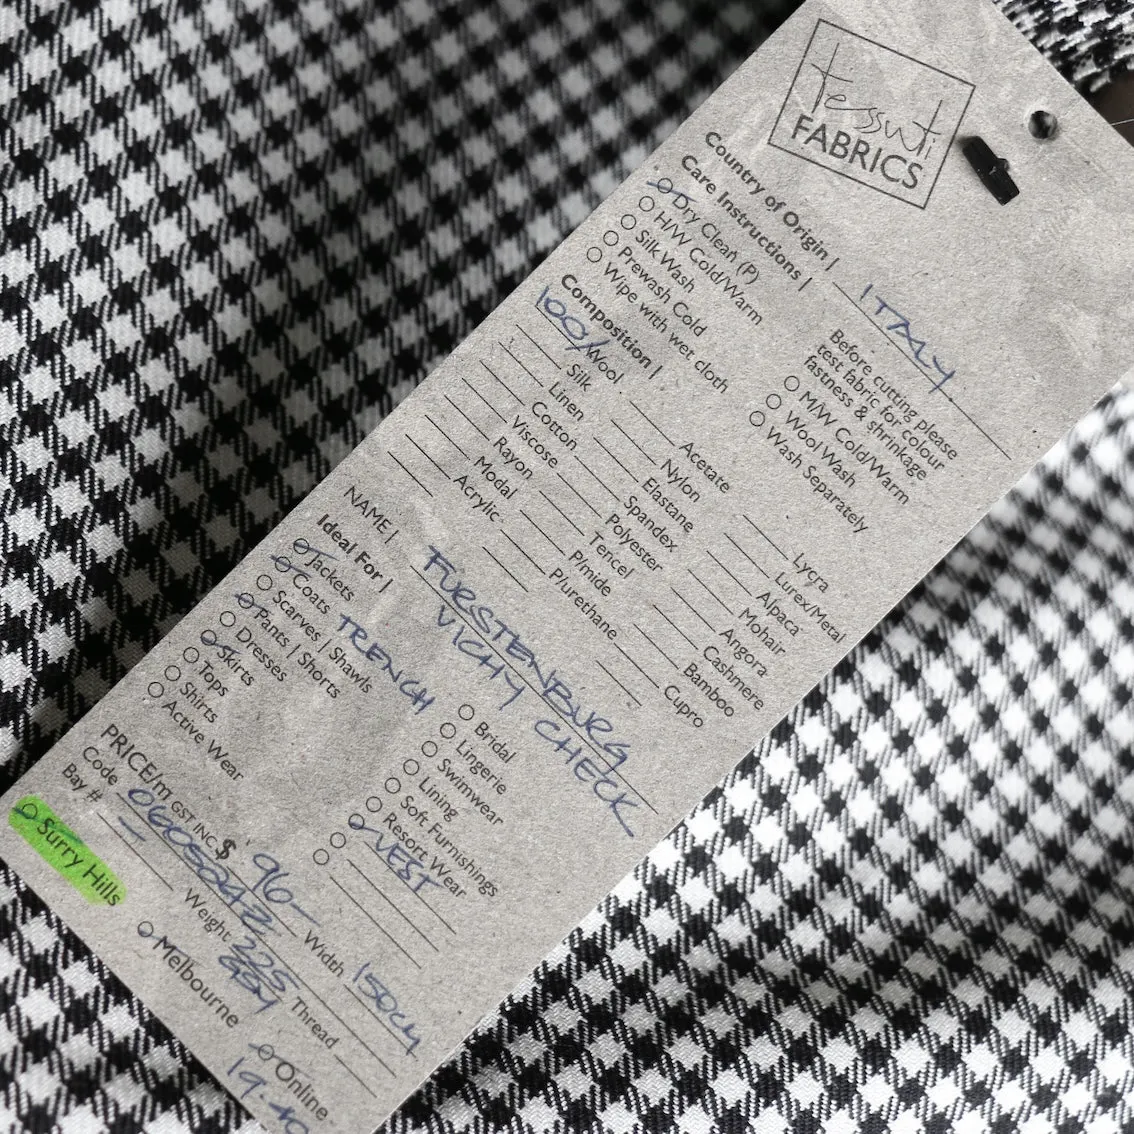 tessuti
FABRICS
Country of Origin | ITALY
Care Instructions |
Dry Clean (P)
H/W Cold/Warm
Silk Wash
Prewash Cold
Wipe with wet cloth
Before cutting please
test fabric for colour
fastness & shrinkage
M/W Cold/Warm
Wool Wash
Wash Separately
Composition |
100/ Wool
Silk
Linen
Cotton
Viscose
Rayon
Modal
Acrylic
Acetate
Nylon
Elastane
Spandex
Polyester
Tencel
P/mide
P/urethane
Lycra
Lurex/Metal
Alpaca
Mohair
Angora
Cashmere
Bamboo
Cupro
NAME | FURSTENBURG
VICHY CHECK
Ideal For |
Jackets
Coats TRENCH
Scarves | Shawls
Pants | Shorts
Dresses
Skirts
Tops
Shirts
Active Wear
Bridal
Lingerie
Swimwear
Lining
Soft Furnishings
Resort Wear
VEST
PRICE/mT GST INC $ 96- Width 150cm
Code 0605042 Weight 325 Thread
GSM
Bay # -
Surry Hills
Melbourne
Online
19.40